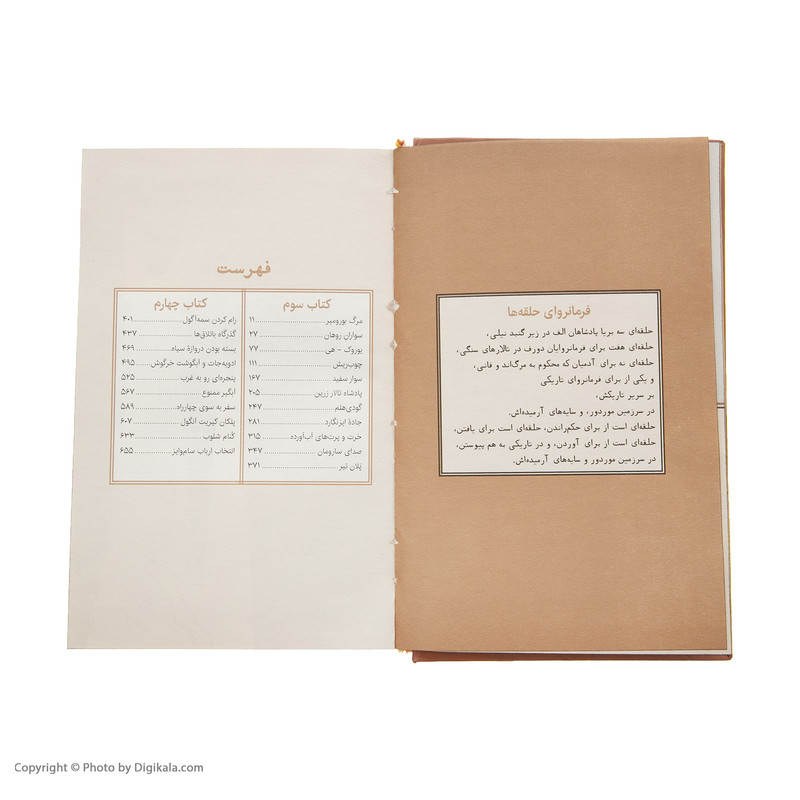 فرمانروای حلقه‌ها
حلقه‌ای سه برپا پادشاهان الف در زیر گنبد نیلی،
حلقه‌ای هفت برای فرمانروایان دورف در تالارهای سنگی،
حلقه‌ای نه برای آدمیان که محکوم به مرگ‌اند و فانی،
و یکی از برای فرمانروای تاریکی
بر سریر تاریکش،
در سرزمین موردور، و سایه‌های آرمیده‌اش.
حلقه‌ای است از برای حکم‌راندن، حلقه‌ای است برای یافتن،
حلقه‌ای است از برای آوردن، و در تاریکی به هم پیوستن،
در سرزمین موردور و سایه‌های آرمیده‌اش.
فهرست
کتاب سوم
مرگ بورومیر ۱۱
سواران روهان ۲۷
یوروک - هی ۷۷
چوب‌ریش ۱۱۱
سوار سفید ۱۶۷
پادشاه تالار زرین ۲۰۵
گودی‌هلم ۲۴۷
جادهٔ ایزنگارد ۲۸۱
خرت و پرت‌های آب‌آورده ۳۱۵
صدای سارومان ۳۴۷
پلان تیر ۳۷۱
کتاب چهارم
رام کردن سمه‌آگول ۴۰۱
گذرگاه باتلاق‌ها ۴۳۷
بسته بودن دروازهٔ سیاه ۴۶۹
ادویه‌جات و آبگوشت خرگوش ۴۹۵
پنجره‌ای رو به غرب ۵۲۵
آبگیر ممنوع ۵۶۷
سفر به سوی چهارراه ۵۸۹
پلکان کیریت آنگول ۶۰۷
کُنام شلوب ۶۳۳
انتخاب ارباب سام‌وایز ۶۵۵
Copyright © Photo by Digikala.com